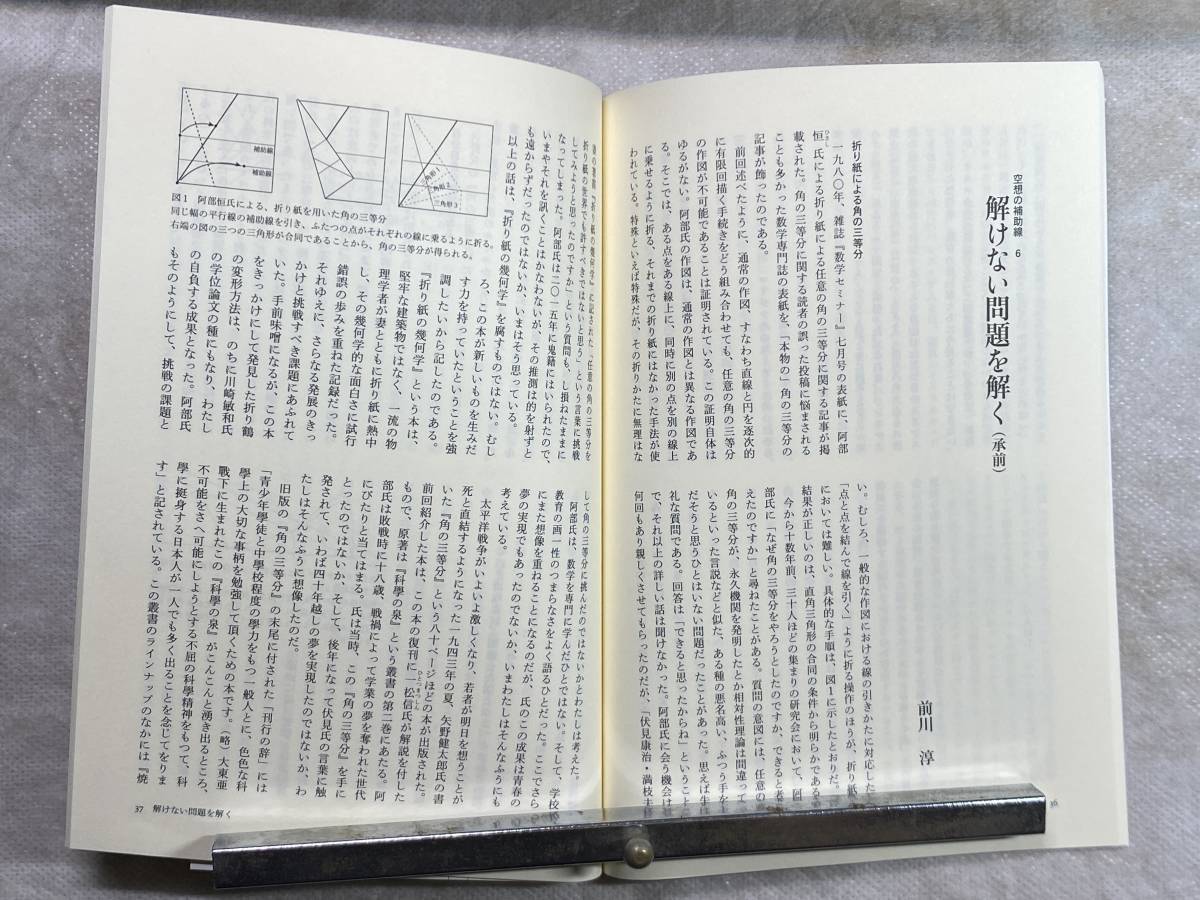 空想の補助線 6
解けない問題を解く(承前)
前川 淳
折り紙による角の三等分
一九八〇年、雑誌『数学セミナー』七月号の表紙に、阿部
恒氏による折り紙による任意の角の三等分に関する記事が掲
載された。角の三等分に関する読者の誤った投稿に悩まされる
ことも多かった数学専門誌の表紙を、「本物の」角の三等分の
記事が飾ったのである。
前回述べたように、通常の作図、すなわち直線と円を逐次的
に有限回描く手続きをどう組み合わせても、任意の角の三等分
の作図が不可能であることは証明されている。この証明自体は
ゆるがない。阿部氏の作図は、通常の作図とは異なる作図であ
る。そこでは、ある点をある線上に、同時に別の点を別の線上
に乗せるように折る、それまでの折り紙にはなかった手法が使
われている。特殊といえば特殊だが、その折りかたに無理はな
い。むしろ、一般的な作図における線の引きかたに対応した
「点と点を結んで線を引く」ように折る操作のほうが、折り紙
においては難しい。具体的な手順は、図1に示したとおりだ。
結果が正しいのは、直角三角形の合同の条件から明らかである
今から十数年前、三十人ほどの集まりの研究会において、
部氏に「なぜ角の三等分をやろうとしたのですか、できると考
えたのですか」と尋ねたことがある。質問の意図には、任意の
角の三等分が、永久機関を発明したとか相対性理論は間違って
いるといった言説などと似た、ある種の悪名高い、ふつう手を
だそうと思うひとはいない問題だったことがあった。思えば失
礼な質問である。回答は「できると思ったからね」ということ
で、それ以上の詳しい話は聞けなかった。阿部氏に会う機会は
何回もあり親しくさせてもらったのだが、「伏見康治・満枝夫
36
『折り紙の幾何学』に記された「任意の角の三等分を
折り紙の世界でも許すべきではないと思う」という言葉に挑戦
してみようと思ったのですか」という質問も、し損ねたままに
なってしまった。阿部氏は二〇一五年に鬼籍にはいられたので、
いまやそれを訊くことはかなわないが、その推測は的を射ずと
も遠からずだったのではないか、いまはそう思っている。
以上の話は、『折り紙の幾何学』を腐すものではない。むし
ろ、この本が新しいものを生みだ
す力を持っていたということを強
調したいから記したのである。
『折り紙の幾何学』という本は、
堅牢な建築物ではなく、一流の物
理学者が妻とともに折り紙に熱中
し、その幾何学的な面白さに試行
錯誤の歩みを重ねた記録だった。
それゆえに、さらなる発展のきっ
かけと挑戦すべき課題にあふれて
いた。手前味噌になるが、この本
をきっかけにして発見した折り鶴
の変形方法は、のちに川崎敏和氏
の学位論文の種にもなり、わたし
の自負する成果となった。阿部氏
もそのようにして、挑戦の課題と
補助線
補助線
三角形1
三角形2
三角形3
図1 阿部恒氏による、折り紙を用いた角の三等分
同じ幅の平行線の補助線を引き、ふたつの点がそれぞれの線に乗るように折る。
右端の図の三つの三角形が合同であることから、角の三等分が得られる。
して角の三等分に挑んだのではないかとわたしは考えた。
阿部氏は、数学を専門に学んだひとではない。そして、学校
教育の画一性のつまらなさをよく語るひとだった。ここでさら
にまた想像を重ねることになるのだが、氏のこの成果は青春の
夢の実現でもあったのでないか、いまわたしはそんなふうにも
考えている。
太平洋戦争がいよいよ激しくなり、若者が明日を想うことが
死と直結するようになった一九四三年の夏、矢野健太郎氏の書
いた『角の三等分』という八十ページほどの本が出版された。
前回紹介した本は、この本の復刊に一松信氏が解説を付した
もので、原著は『科學の泉』という叢書の第二巻にあたる。阿
部氏は敗戦時に十八歳、戦禍によって学業の夢を奪われた世代
にぴたりと当てはまる。氏は当時、この『角の三等分』を手に
とったのではないか、そして、後年になって伏見氏の言葉に触
発されて、いわば四十年越しの夢を実現したのではないか、わ
たしはそんなふうに想像したのだ。
旧版の『角の三等分』の末尾に付された「刊行の辞」には
「青少年學徒と中學校程度の學力をもつ一般人とに、色色な科
學上の大切な事柄を勉強して頂くための本です。(略)大東亜
戰下に生まれたこの『科學の泉』がこんこんと湧き出るところ、
不可能をさへ可能にしようとする不屈の科學精神をもつて、科
學に挺身する日本人が一人でも多く出ることを念じてをりま
す」と記されている。この叢書のラインナップのなかには『焼
37 解けない問題を解く